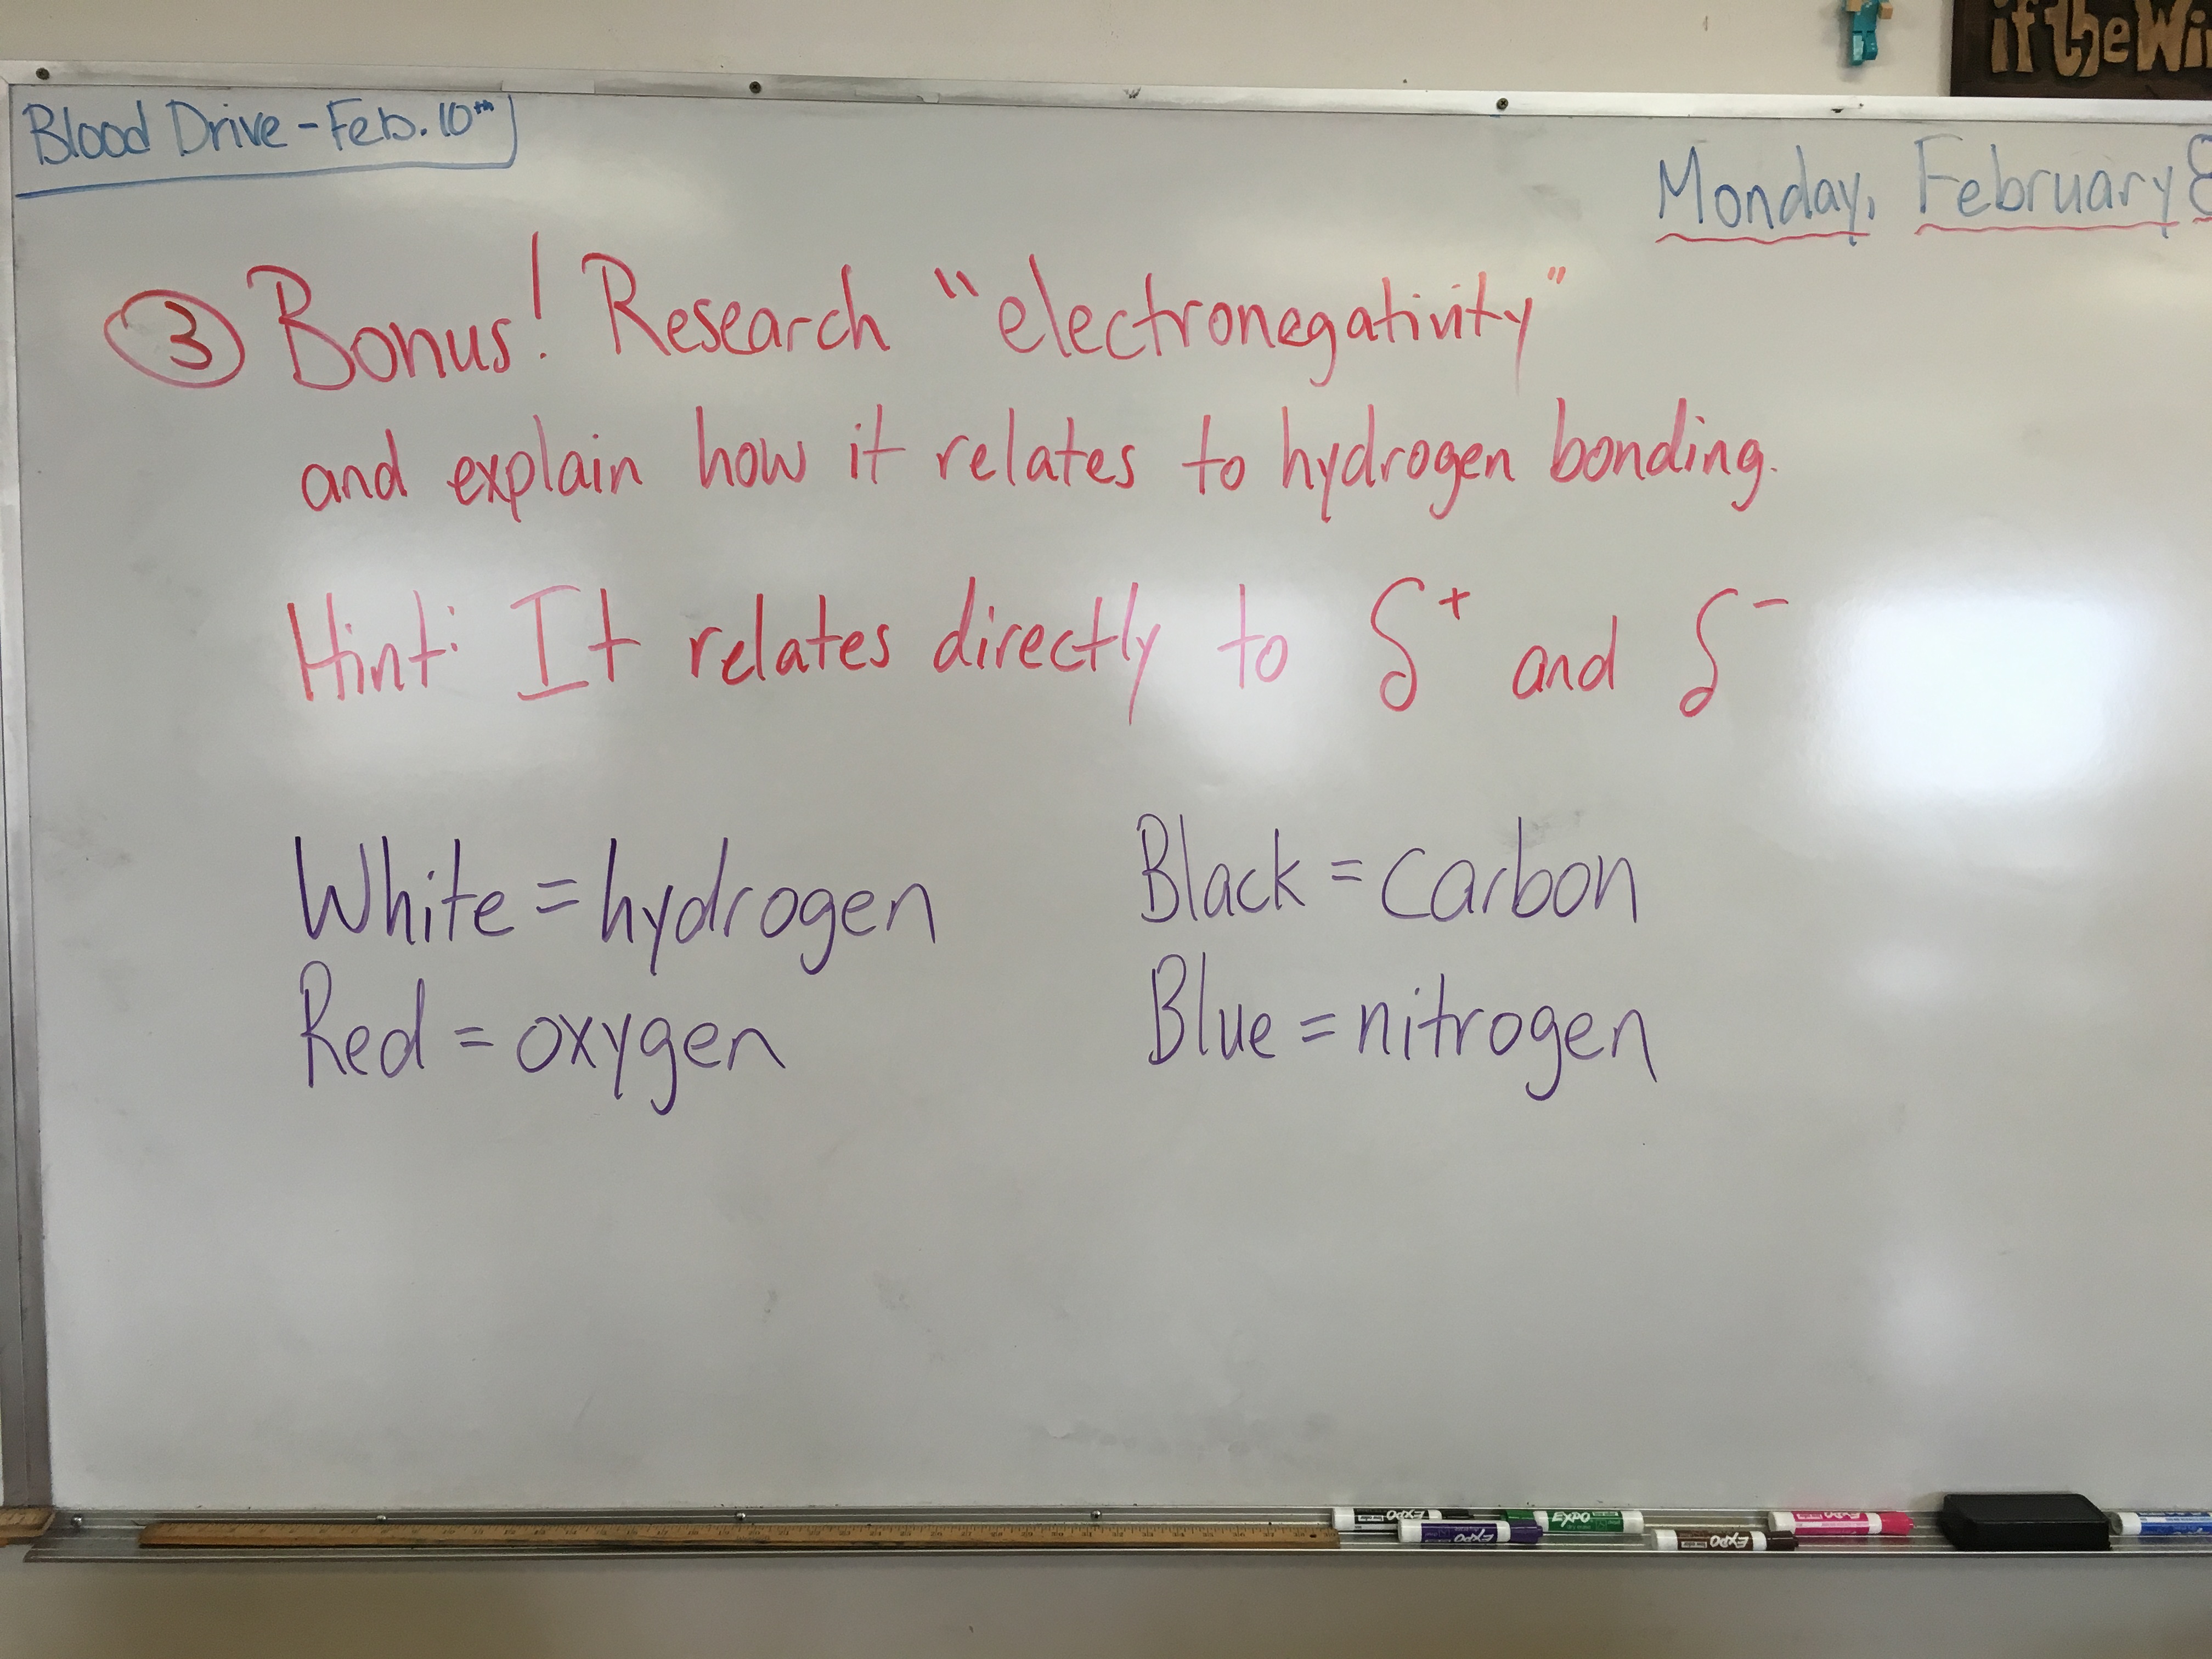 if the Wi
Blood Drive - Feb. 10th
Monday, February 8
③ Bonus! Research "electronegativity"
and explain how it relates to hydrogen bonding.
Hint: It relates directly to δ⁺ and δ⁻
White = hydrogen
Black = carbon
Red = oxygen
Blue = nitrogen
EXPO
EXPO
EXPO
EXPO